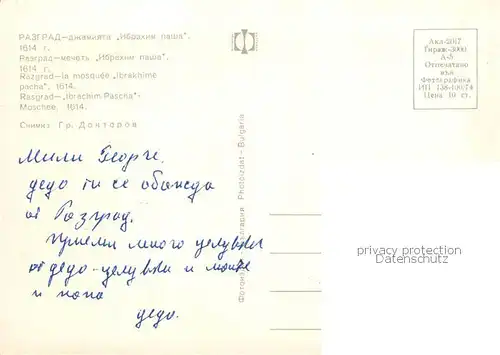 РАЗГРАД—джамията „Ибрахим паша“.
1614 г.
Разград—мечеть „Ибрахим паша“.
1614 г.
Razgrad—la mosquée „Ibrakhime
pacha“. 1614.
Rasgrad—„Ibrachim Pascha“-
Moschee, 1614.
Снимка Гр. Доктаров
Мили Георги,
дядо ти се обажда
от Разград.
Приеми много целувки
от дядо-целувки и
и папа
дядо.
България Photoizdat - Bulgaria
Тираж-3000
А-5
Отпечатано
във
Фотографика
Цена 10 ст.
privacy protection
Datenschutz